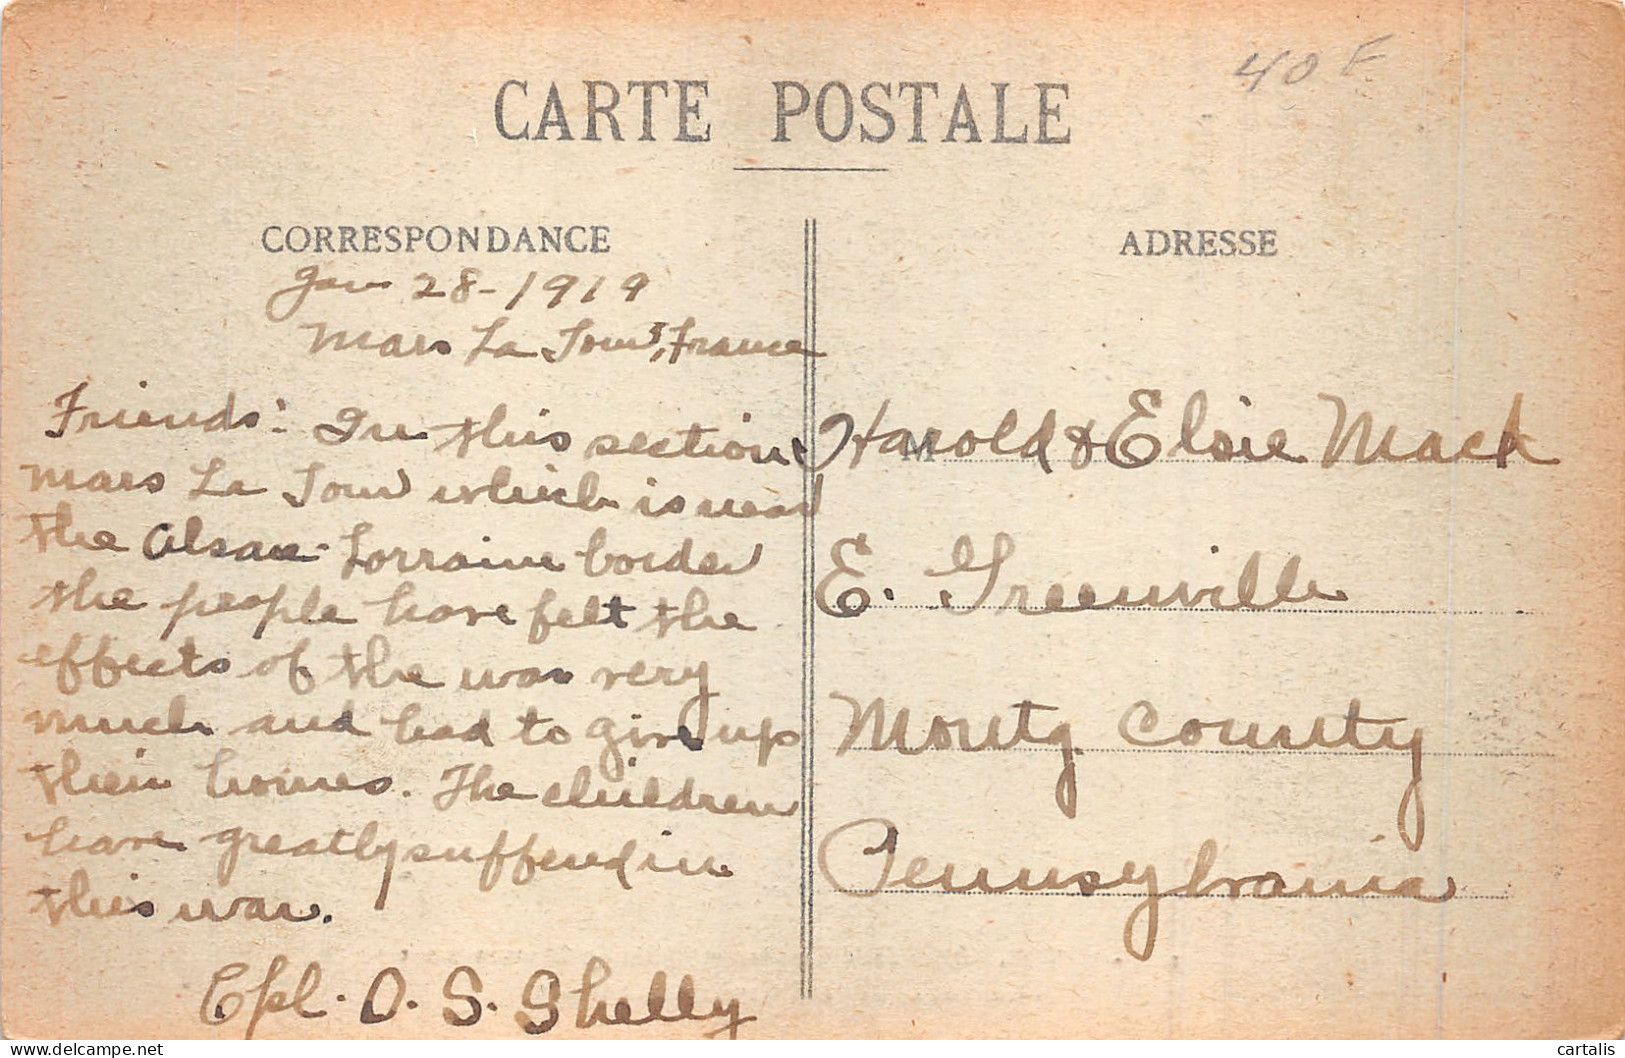 40 F
CARTE POSTALE
CORRESPONDANCE
Jan 28-1919
Mars La Tour, France
Friends: In this section
Mars La Tour which is near
the Alsace-Lorraine border
the people have felt the
effects of the war very
much and had to give up
their homes. The children
have greatly suffered in
this war.
Cpl. O. S. Shelly
ADRESSE
M
Harold & Elsie Mack
E. Greenville
Montg. County
Pennsylvania
cartalis
www.delcampe.net